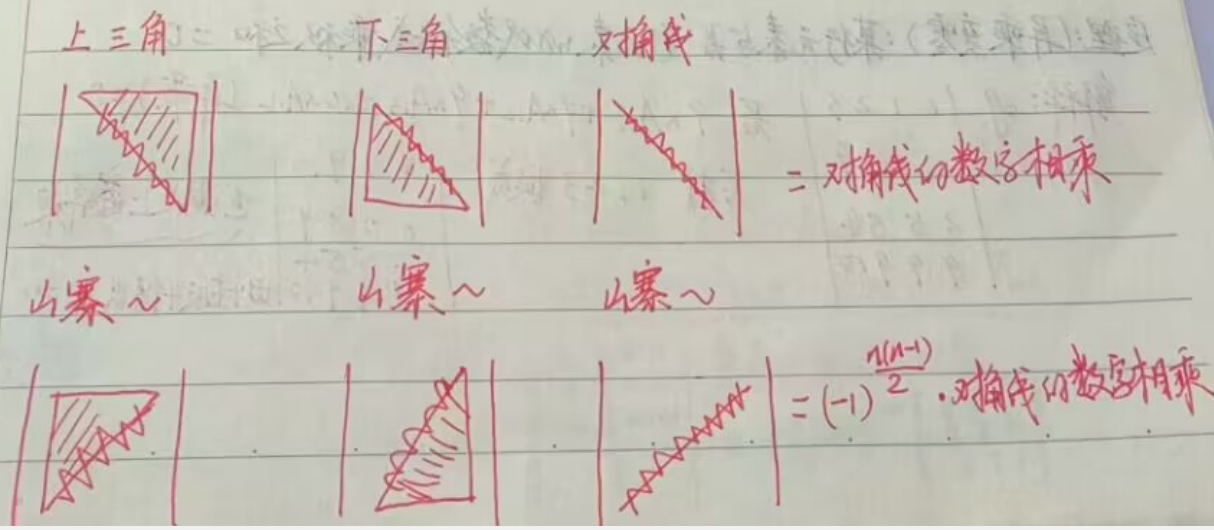 上三角 下三角 对角线
= 对角线的数字相乘
山寨~ 山寨~ 山寨~
= (-1)^{\frac{n(n-1)}{2}} · 对角线的数字相乘